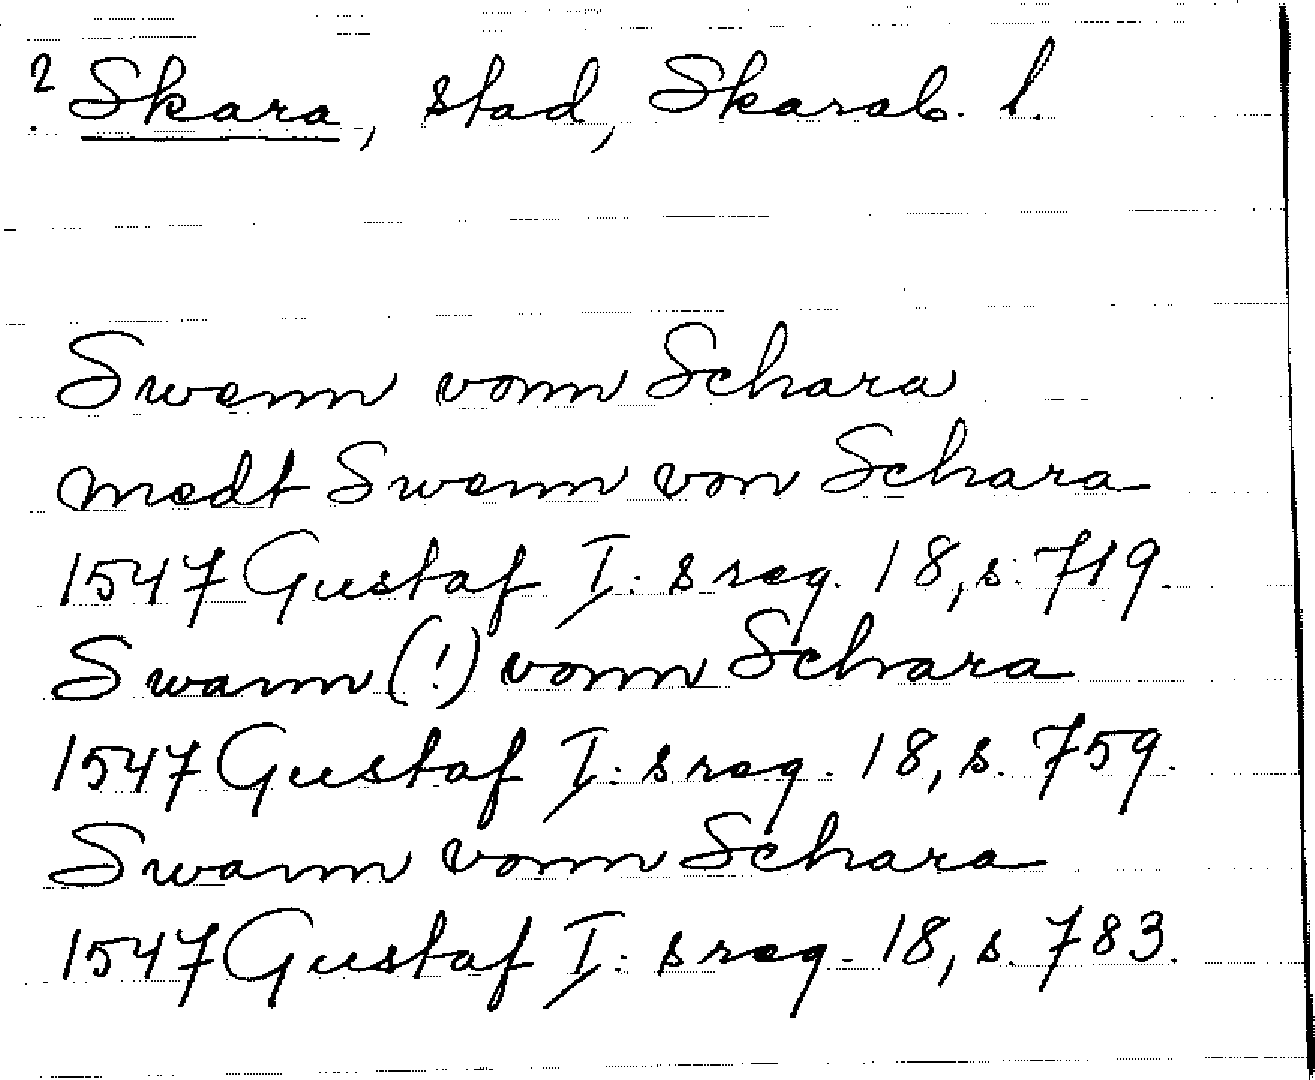 ? Skara, stad, Skarab. l.
Swenn vonn Schara
medt Swenn von Schara
1547 Gustaf I:s reg. 18, s. 719.
Swann (!) vonn Schara
1547 Gustaf I:s reg. 18, s. 759.
Swann vonn Schara
1547 Gustaf I:s reg. 18, s. 783.